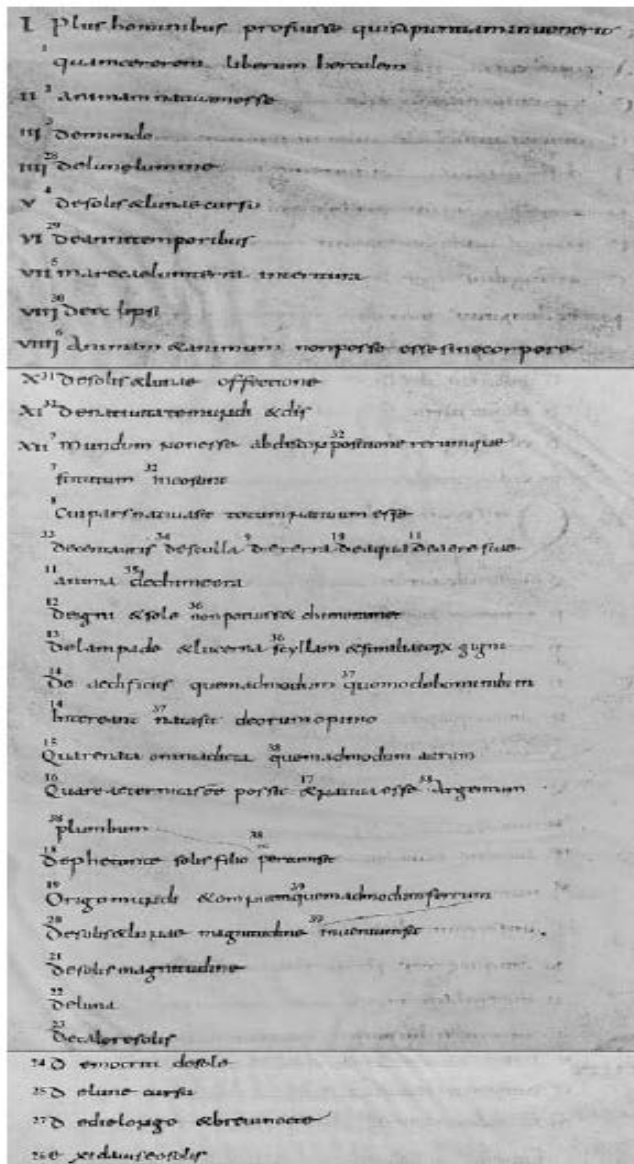 I Plus hominibus profuisse qui sapientiam invenerit
1 quam cererem liberum herculem
II 2 Animam nativam esse
III 3 de mundo
IIII 28 de lune lumine
V 4 de solis & lunae cursu
VI 29 de anni temporibus
VII 5 mare caelum terra interitura
VIII 30 de ec lipsi
VIIII 6 Animam & animum non posse esse sine corpore
X 31 de solis & lunae offectione
XI 32 de
XII 7 mundum non esse ab 32 positione rerumque
7 finitum 32
8 Cui pars nativa sit totum nativum esse
33 de centauris 34 de scylla 9 de terra 10 de aqua 11 de aere sive
11 anima 35 de chimera
12 de igni & sole 36 non potuisse
13 de lampade & lucerna 36 scyllam & similia gigni
14 de aedificiis quemadmodum 37 quomodo hominibus
14 intereant 37 nata sit deorum opinio
15 Quare nata omnia dicta 38 quemadmodum aurum
16 Quare aeterna posse 17 & nativa esse 38 Argentum
38 plumbum
18 de phetonte solis filio 38
19 Origo mundi & omnium 39 quemadmodum ferrum
20 de solis & lunae magnitudine 39 inventum sit
21 de solis magnitudine
22 de luna
23 de calore solis
24 d emocriti de sole
25 d elune cursu
27 d e die longo & brevi nocte
26 e